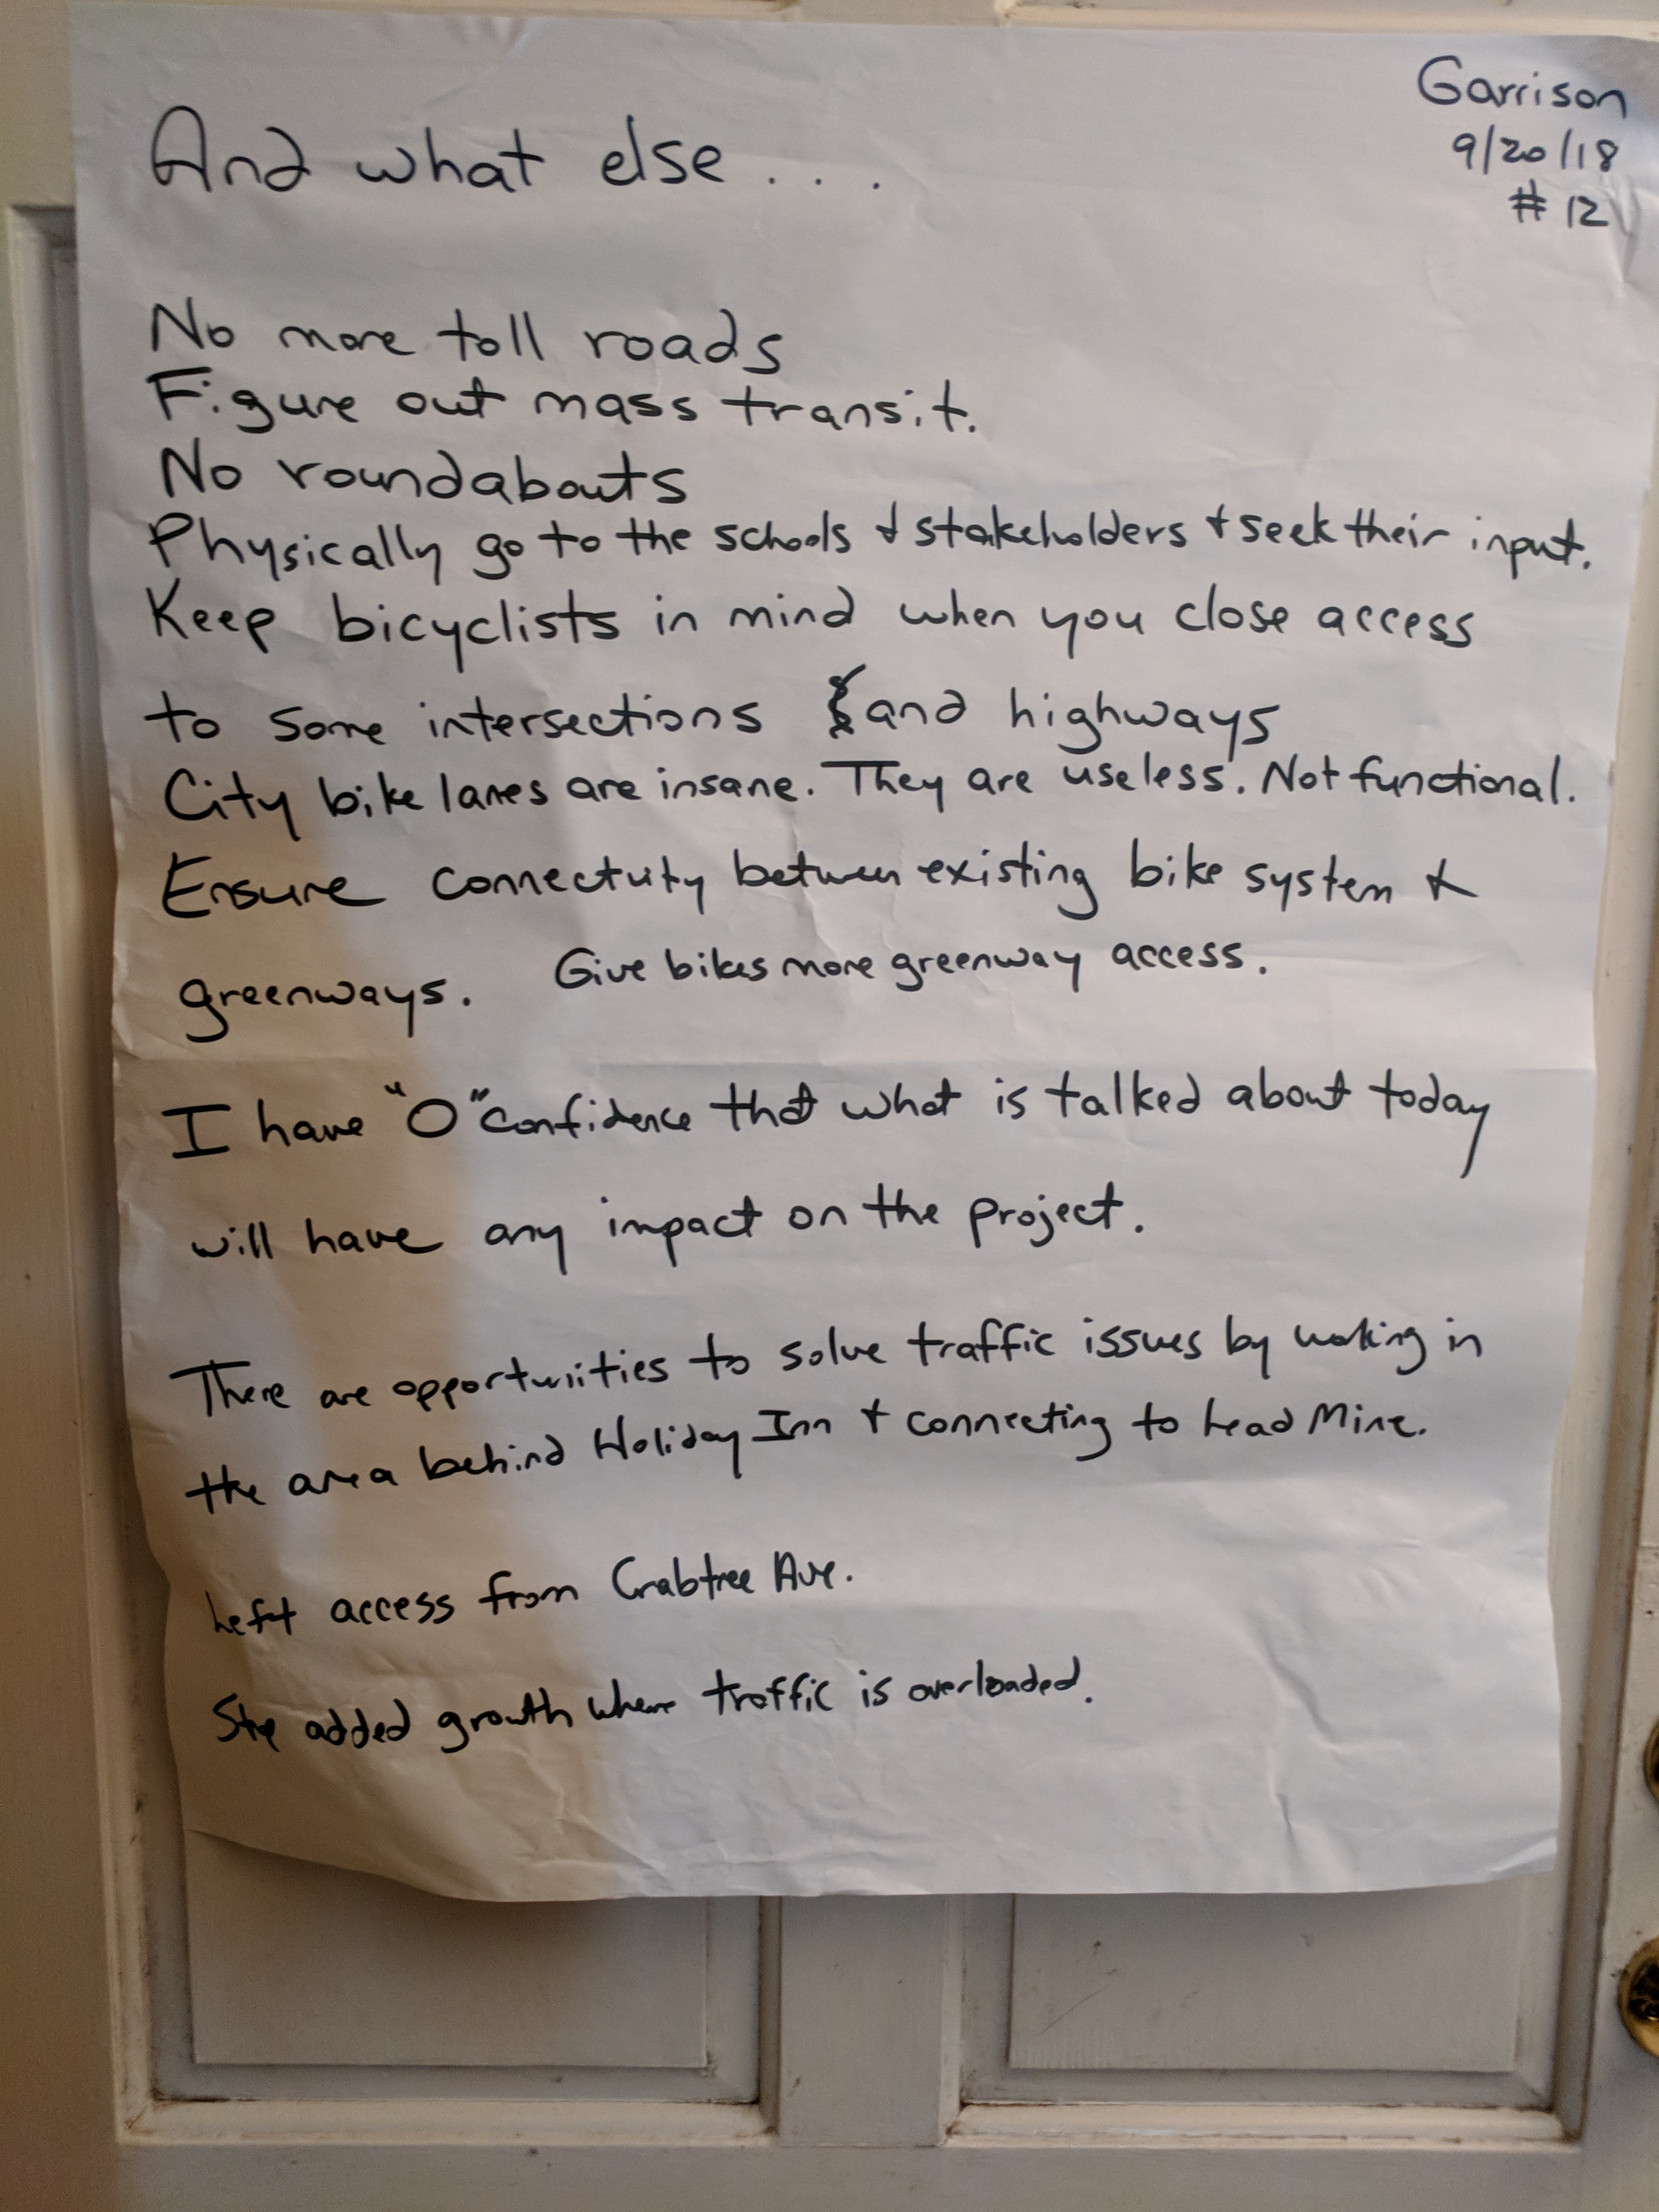 Garrison
9/20/18
# 12
And what else . . . .
No more toll roads
Figure out mass transit.
No roundabouts
Physically go to the schools + stakeholders + seek their input.
Keep bicyclists in mind when you close access
to some intersections and highways
City bike lanes are insane. They are useless. Not functional.
Ensure connectivity between existing bike system &
greenways. Give bikes more greenway access.
I have "0" confidence that what is talked about today
will have any impact on the project.
There are opportunities to solve traffic issues by working in
the area behind Holiday Inn + connecting to Lead Mine.
Left access from Crabtree Ave.
Stop added growth where traffic is overloaded.